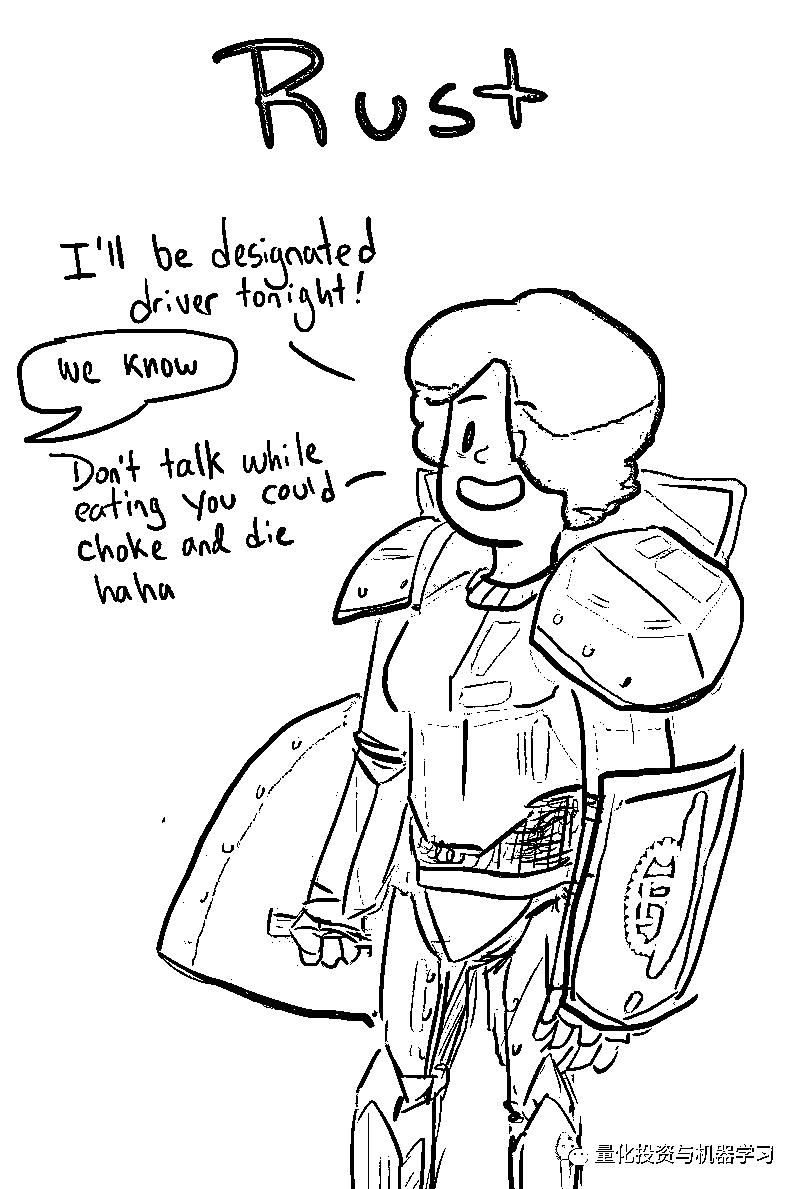 Rust
I'll be designated
driver tonight!
we know
Don't talk while
eating you could
choke and die
haha
量化投资与机器学习